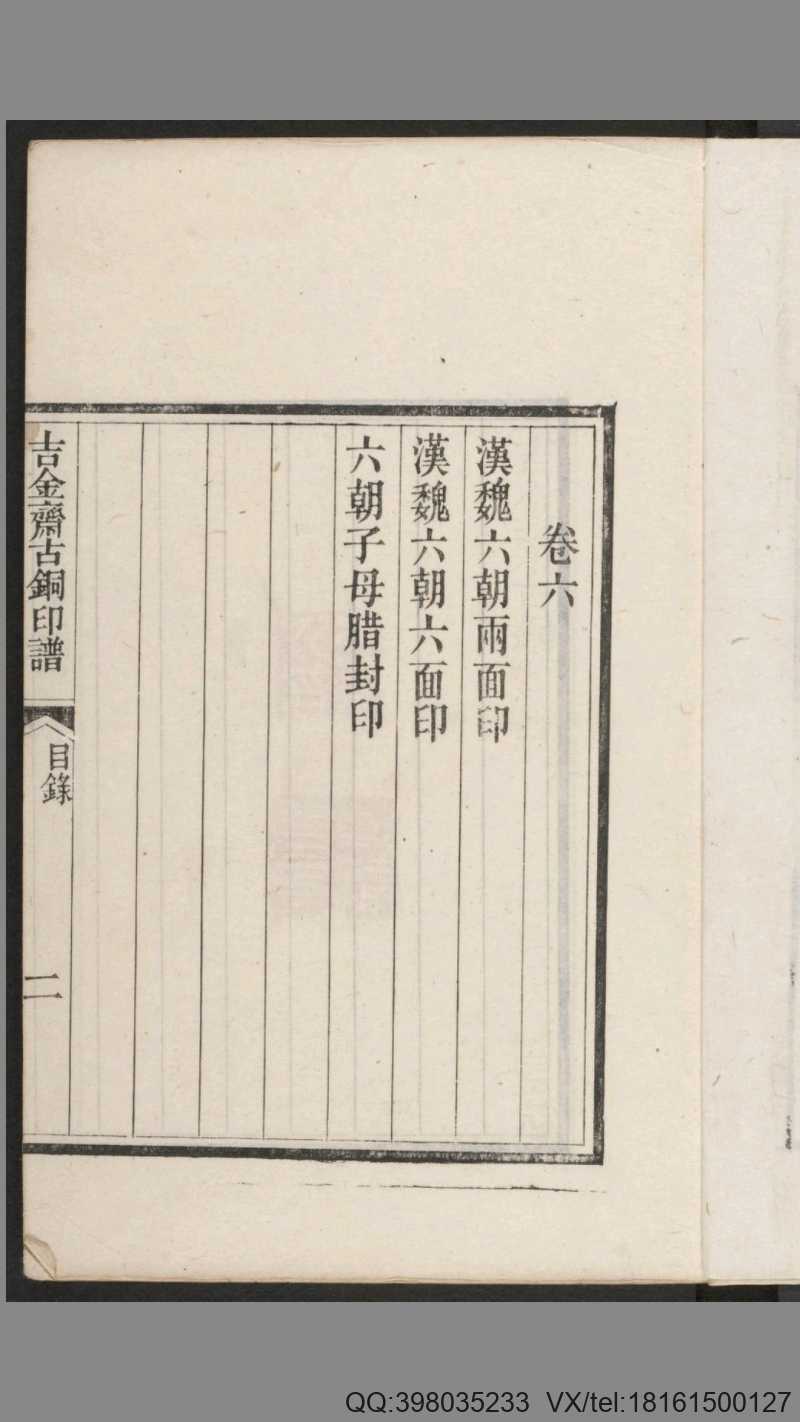 卷六
漢魏六朝兩面印
漢魏六朝六面印
六朝子母腊封印
吉金齋古銅印譜
目錄
二
QQ:398035233 VX/tel:18161500127